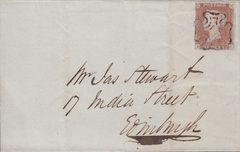 Mr Jas Stewart
17 India Street
Edinburgh